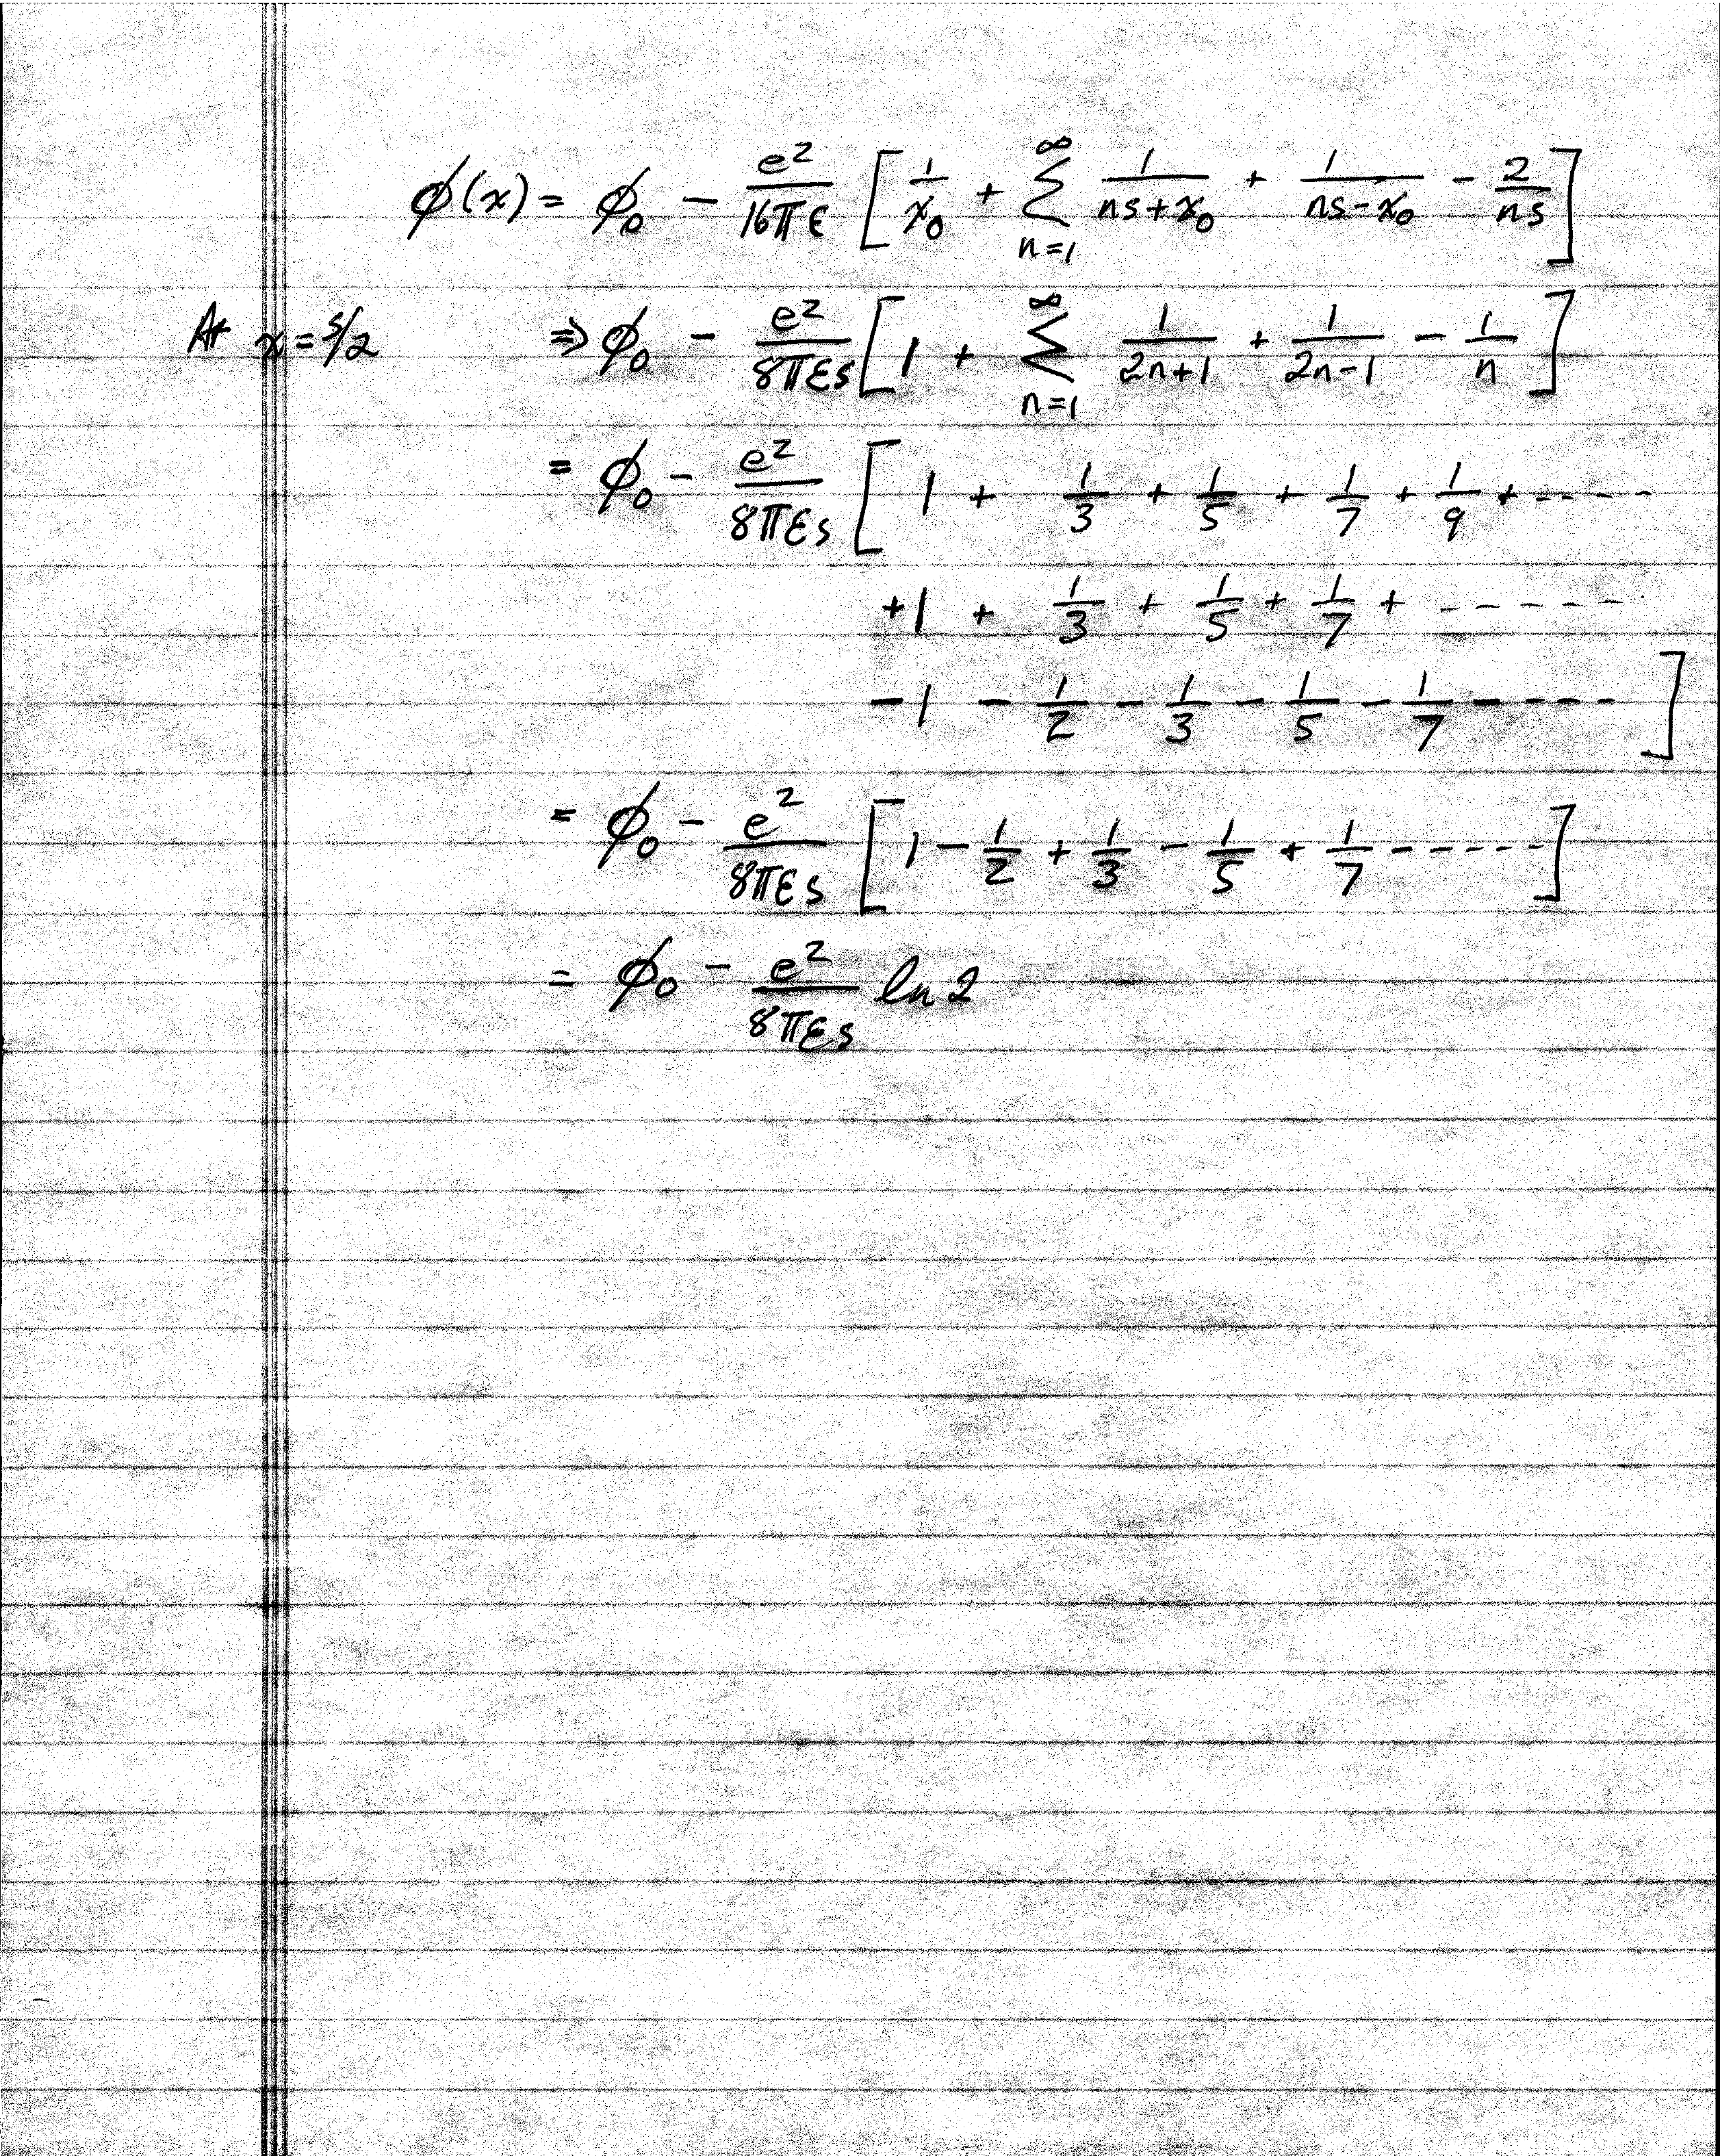 ϕ(x) = ϕ₀ − e²/16πε [ 1/x₀ + ∑_{n=1}^{∞} 1/(ns+x₀) + 1/(ns−x₀) − 2/ns ]
At x = s/2 ⇒ ϕ₀ − e²/8πεs [ 1 + ∑_{n=1}^{∞} 1/(2n+1) + 1/(2n−1) − 1/n ]
= ϕ₀ − e²/8πεs [ 1 + 1/3 + 1/5 + 1/7 + 1/9 + - - - -
+1 + 1/3 + 1/5 + 1/7 + - - - - -
−1 − 1/2 − 1/3 − 1/5 − 1/7 − - - - ]
= ϕ₀ − e²/8πεs [ 1 − 1/2 + 1/3 − 1/5 + 1/7 - - - - - ]
= ϕ₀ − e²/8πεs ln 2